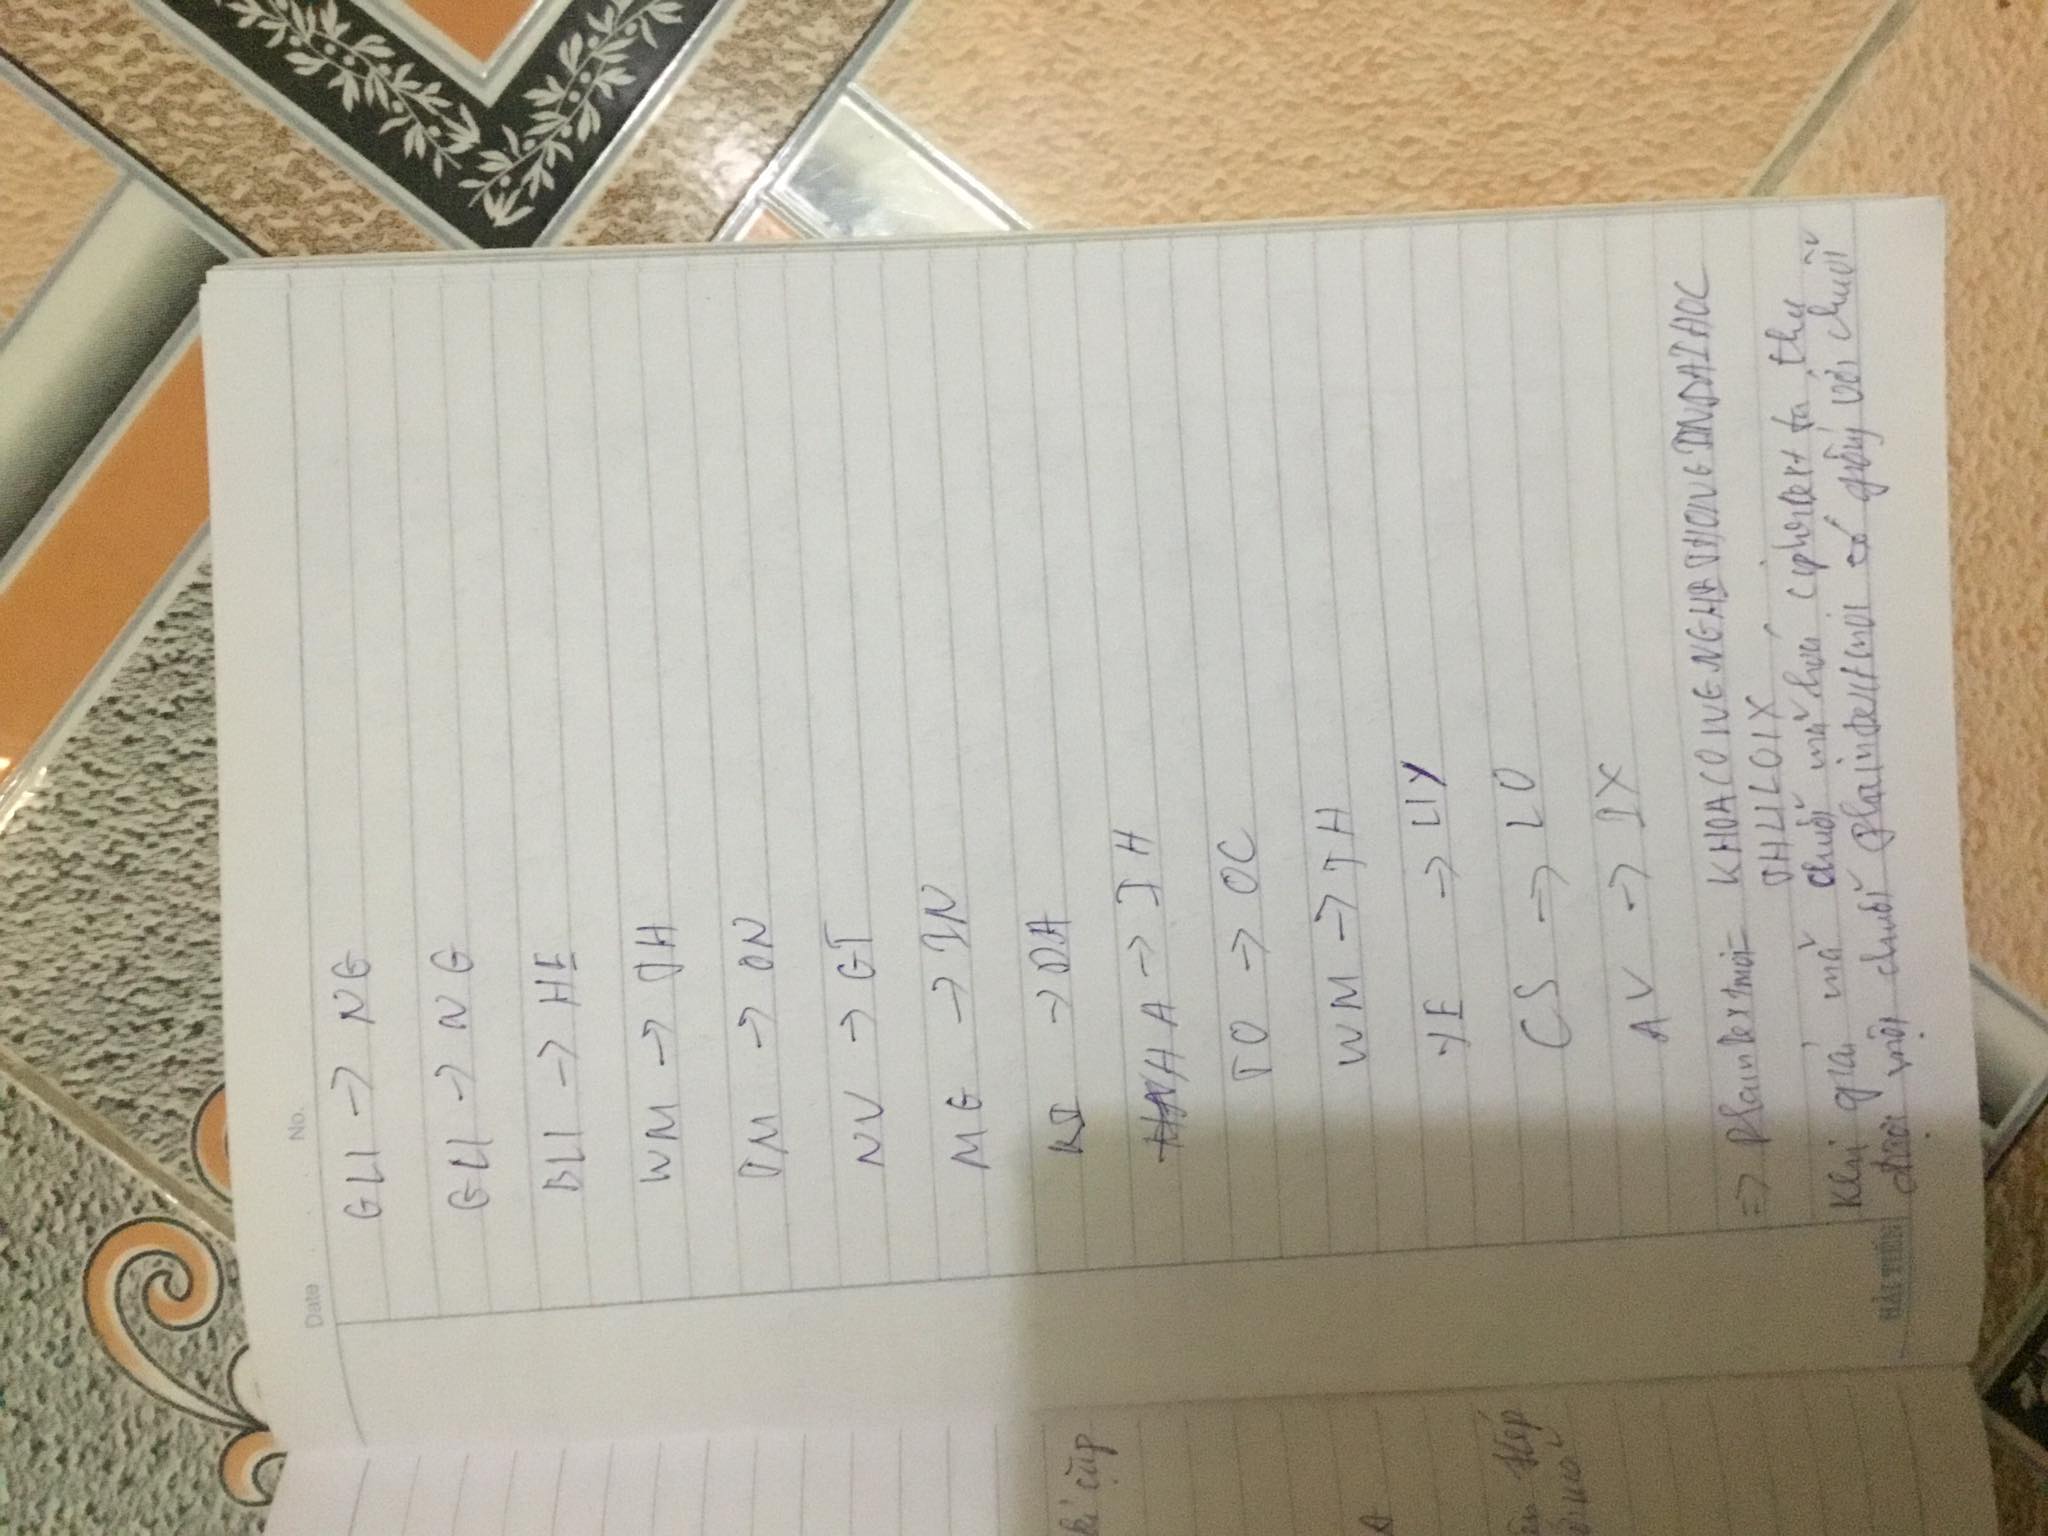 Date No.
GU → NG
GU → NG
BU → HE
WM → TH
TM → ON
NV → GT
MG → IN
KI → DA
HA → IH
TO → OC
WM → TH
YE → UY
CS → LO
AV → IX
=> Plaintext mới = KHOACONGNGHETHONGTINDAIHOC
THULOIX
Khi giải mã chuỗi mã hoá ciphertext ta thu
được một chuỗi plaintext mới có giống với chuỗi
HẢI TIẾN
kí cũng
A
tiếp